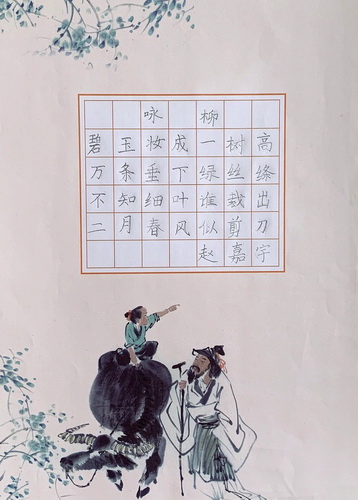 咏柳
碧玉妆成一树高
万条垂下绿丝绦
不知细叶谁裁出
二月春风似剪刀
赵嘉宇